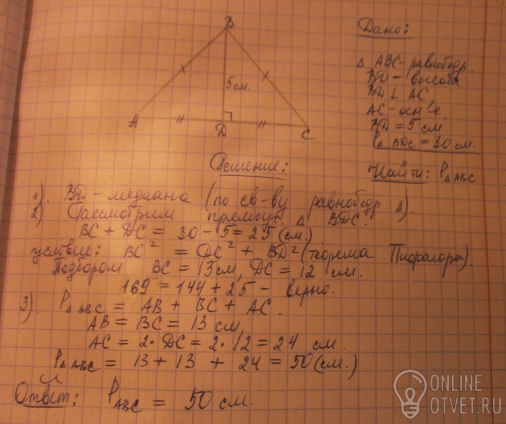 B
5 см.
A
D
C
Дано:
Δ ABC - равнобедр.
BD - высота
BD ⊥ AC
AC - осн-е
BD = 5 см.
P Δ BDC = 30 см.
Найти: P Δ ABC
Решение:
1). BD - медиана (по св-ву равнобедр. Δ).
2). Рассмотрим прямоуг. Δ BDC:
BC + DC = 30 - 5 = 25 (см.)
условие: BC² = DC² + BD² (теорема Пифагора).
Подбором BC = 13 см, DC = 12 см.
169 = 144 + 25 - верно.
3) P Δ ABC = AB + BC + AC.
AB = BC = 13 см,
AC = 2 · DC = 2 · 12 = 24 см.
P Δ ABC = 13 + 13 + 24 = 50 (см.)
Ответ: P ABC = 50 см.
ONLINE
OTVET.RU